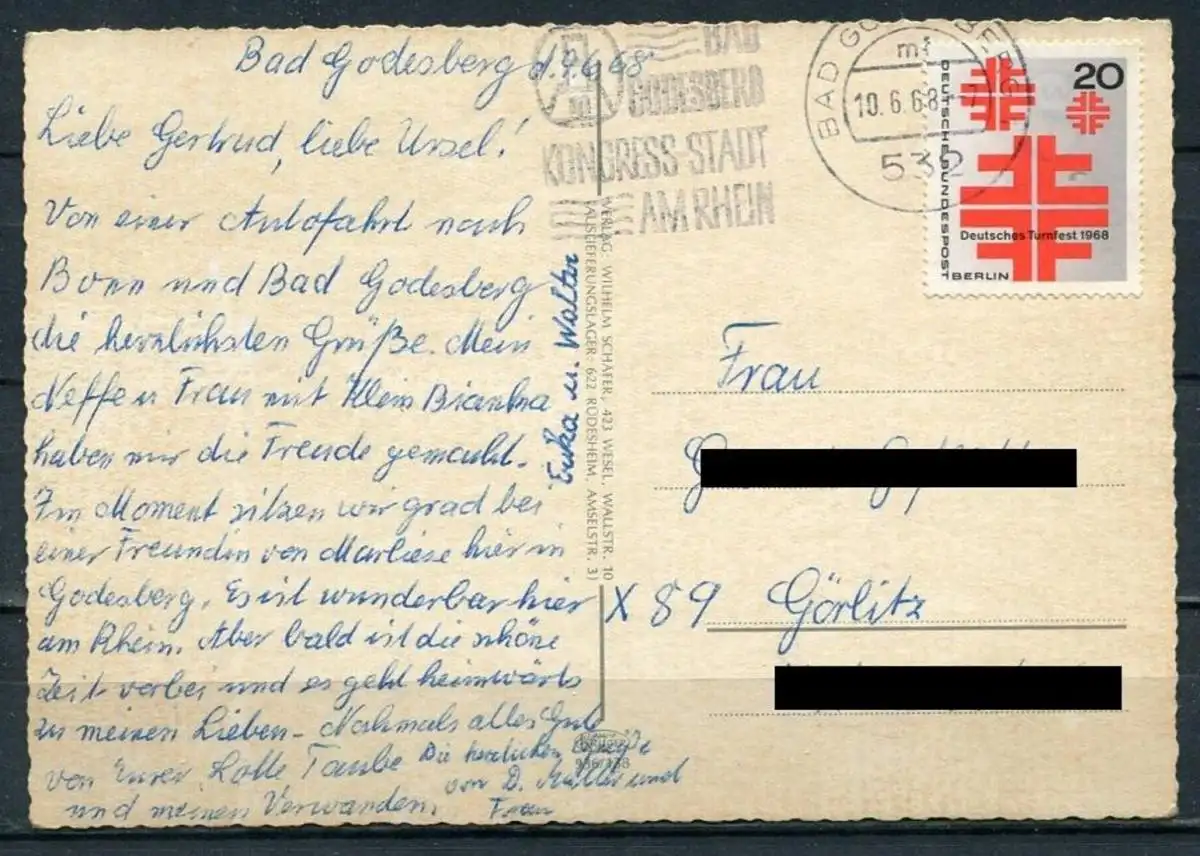 Bad Godesberg d. 9.6.68
Liebe Gertrud, liebe Ursel!
Von einer Autofahrt nach
Bonn und Bad Godesberg
die herzlichsten Grüße. Mein
Neffe u Frau mit Klein Bianka
haben mir die Freude gemacht.
Im Moment sitzen wir grad bei
einer Freundin von Marliese hier in
Godesberg. Es ist wunderbar hier
am Rhein. Aber bald ist die schöne
Zeit vorbei und es geht heimwärts
zu meinen Lieben – Nochmals alles Gute
von Eurer Lotte Taube
und meinen Verwanden.
Die herzlichen Grüße
von D. Müller und
Frau
Erika u. Walter
VERLAG: WILHELM SCHÄFER, 423 WESEL, WALLSTR. 10
AUSLIEFERUNGSLAGER: 622 RÜDESHEIM, AMSELSTR. 3)
936/138
BAD
GODESBERG
KONGRESS-STADT
AM RHEIN
BAD GO
mf
10.6.68
532
20
DEUTSCHE BUNDESPOST
BERLIN
Deutsches Turnfest 1968
Frau
X 89 Görlitz